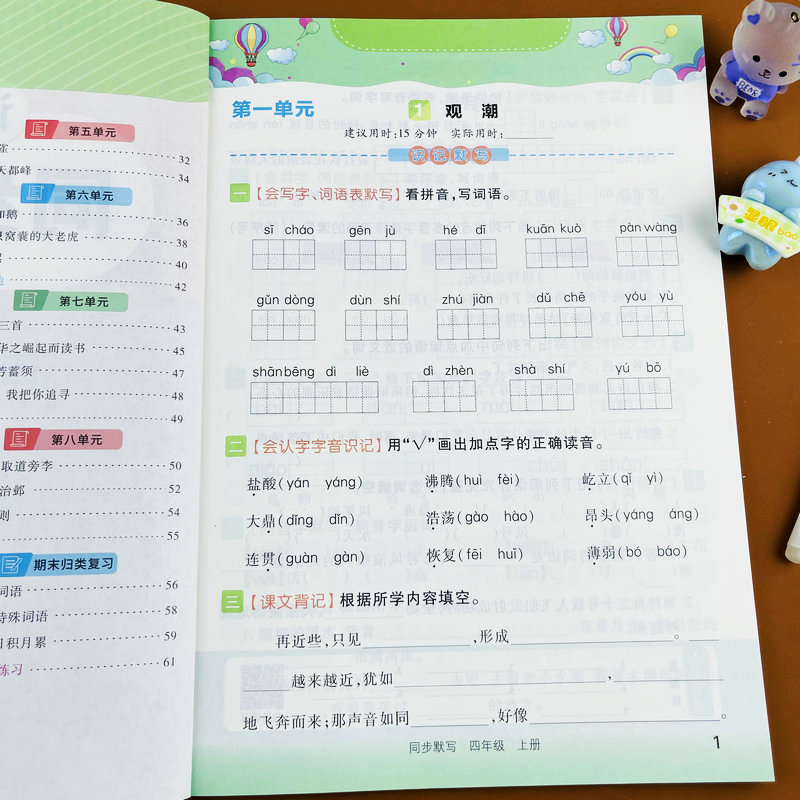 第五单元
雀 32
天都峰 34
第六单元
和鹅 36
窝囊的大老虎 38
40
42
第七单元
三首 43
华之崛起而读书 45
芳蓄须 47
我把你追寻 48
49
第八单元
取道旁李 50
治邺 52
则 54
55
期末归类复习
词语 56
特殊词语 58
日积月累 59
练习 61
第一单元
1 观 潮
建议用时:15分钟 实际用时:
识记默写
一【会写字、词语表默写】看拼音,写词语。
sī cháo gēn jù hé dī kuān kuò pàn wàng
gǔn dòng dùn shí zhú jiàn dǔ chē yóu yù
shān bēng dì liè dì zhèn shà shí yú bō
二【会认字字音识记】用“√”画出加点字的正确读音。
盐酸(yán yáng) 沸腾(huì fèi) 屹立(qǐ yì)
大鼎(dǐng dǐn) 浩荡(gào hào) 昂头(yáng áng)
连贯(guàn gàn) 恢复(fēi huī) 薄弱(bó báo)
三【课文背记】根据所学内容填空。
再近些,只见 ,形成 。
越来越近,犹如 ,
地飞奔而来;那声音如同 ,好像 。
同步默写 四年级 上册 1
BEAR
bao